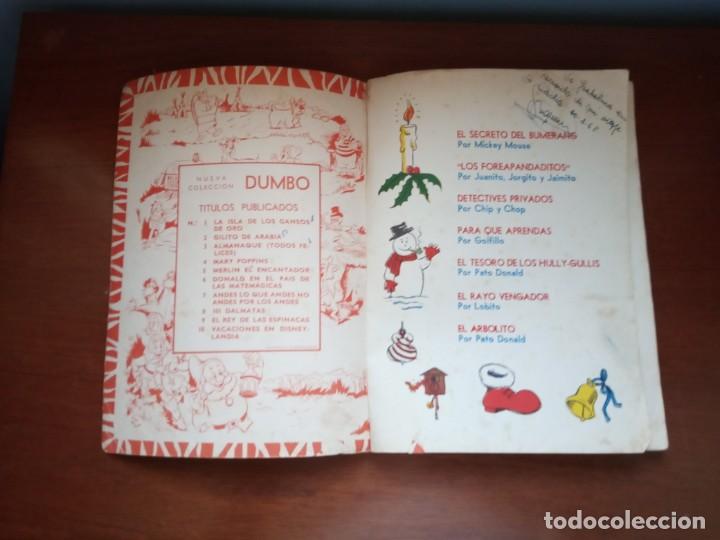 NUEVA
COLECCIÓN DUMBO
TITULOS PUBLICADOS
N.º 1 LA ISLA DE LOS GANSOS
DE ORO
2 GILITO DE ARABIA
3 ALMANAQUE (TODOS FE-
LICES)
4 MARY POPPINS
5 MERLIN EL ENCANTADOR
6 DONALD EN EL PAIS DE
LAS MATEMATICAS
7 ANDES LO QUE ANDES NO
ANDES POR LOS ANDES
8 III DALMATAS
9 EL REY DE LAS ESPINACAS
10 VACACIONES EN DISNEY-
LANDIA
EL SECRETO DEL BUMERANG
Por Mickey Mouse
"LOS FOREAPANDADITOS"
Por Juanito, Jorgito y Jaimito
DETECTIVES PRIVADOS
Por Chip y Chop
PARA QUE APRENDAS
Por Golfillo
EL TESORO DE LOS HULLY-GULLIS
Por Pato Donald
EL RAYO VENGADOR
Por Lobito
EL ARBOLITO
Por Pato Donald
todocoleccion